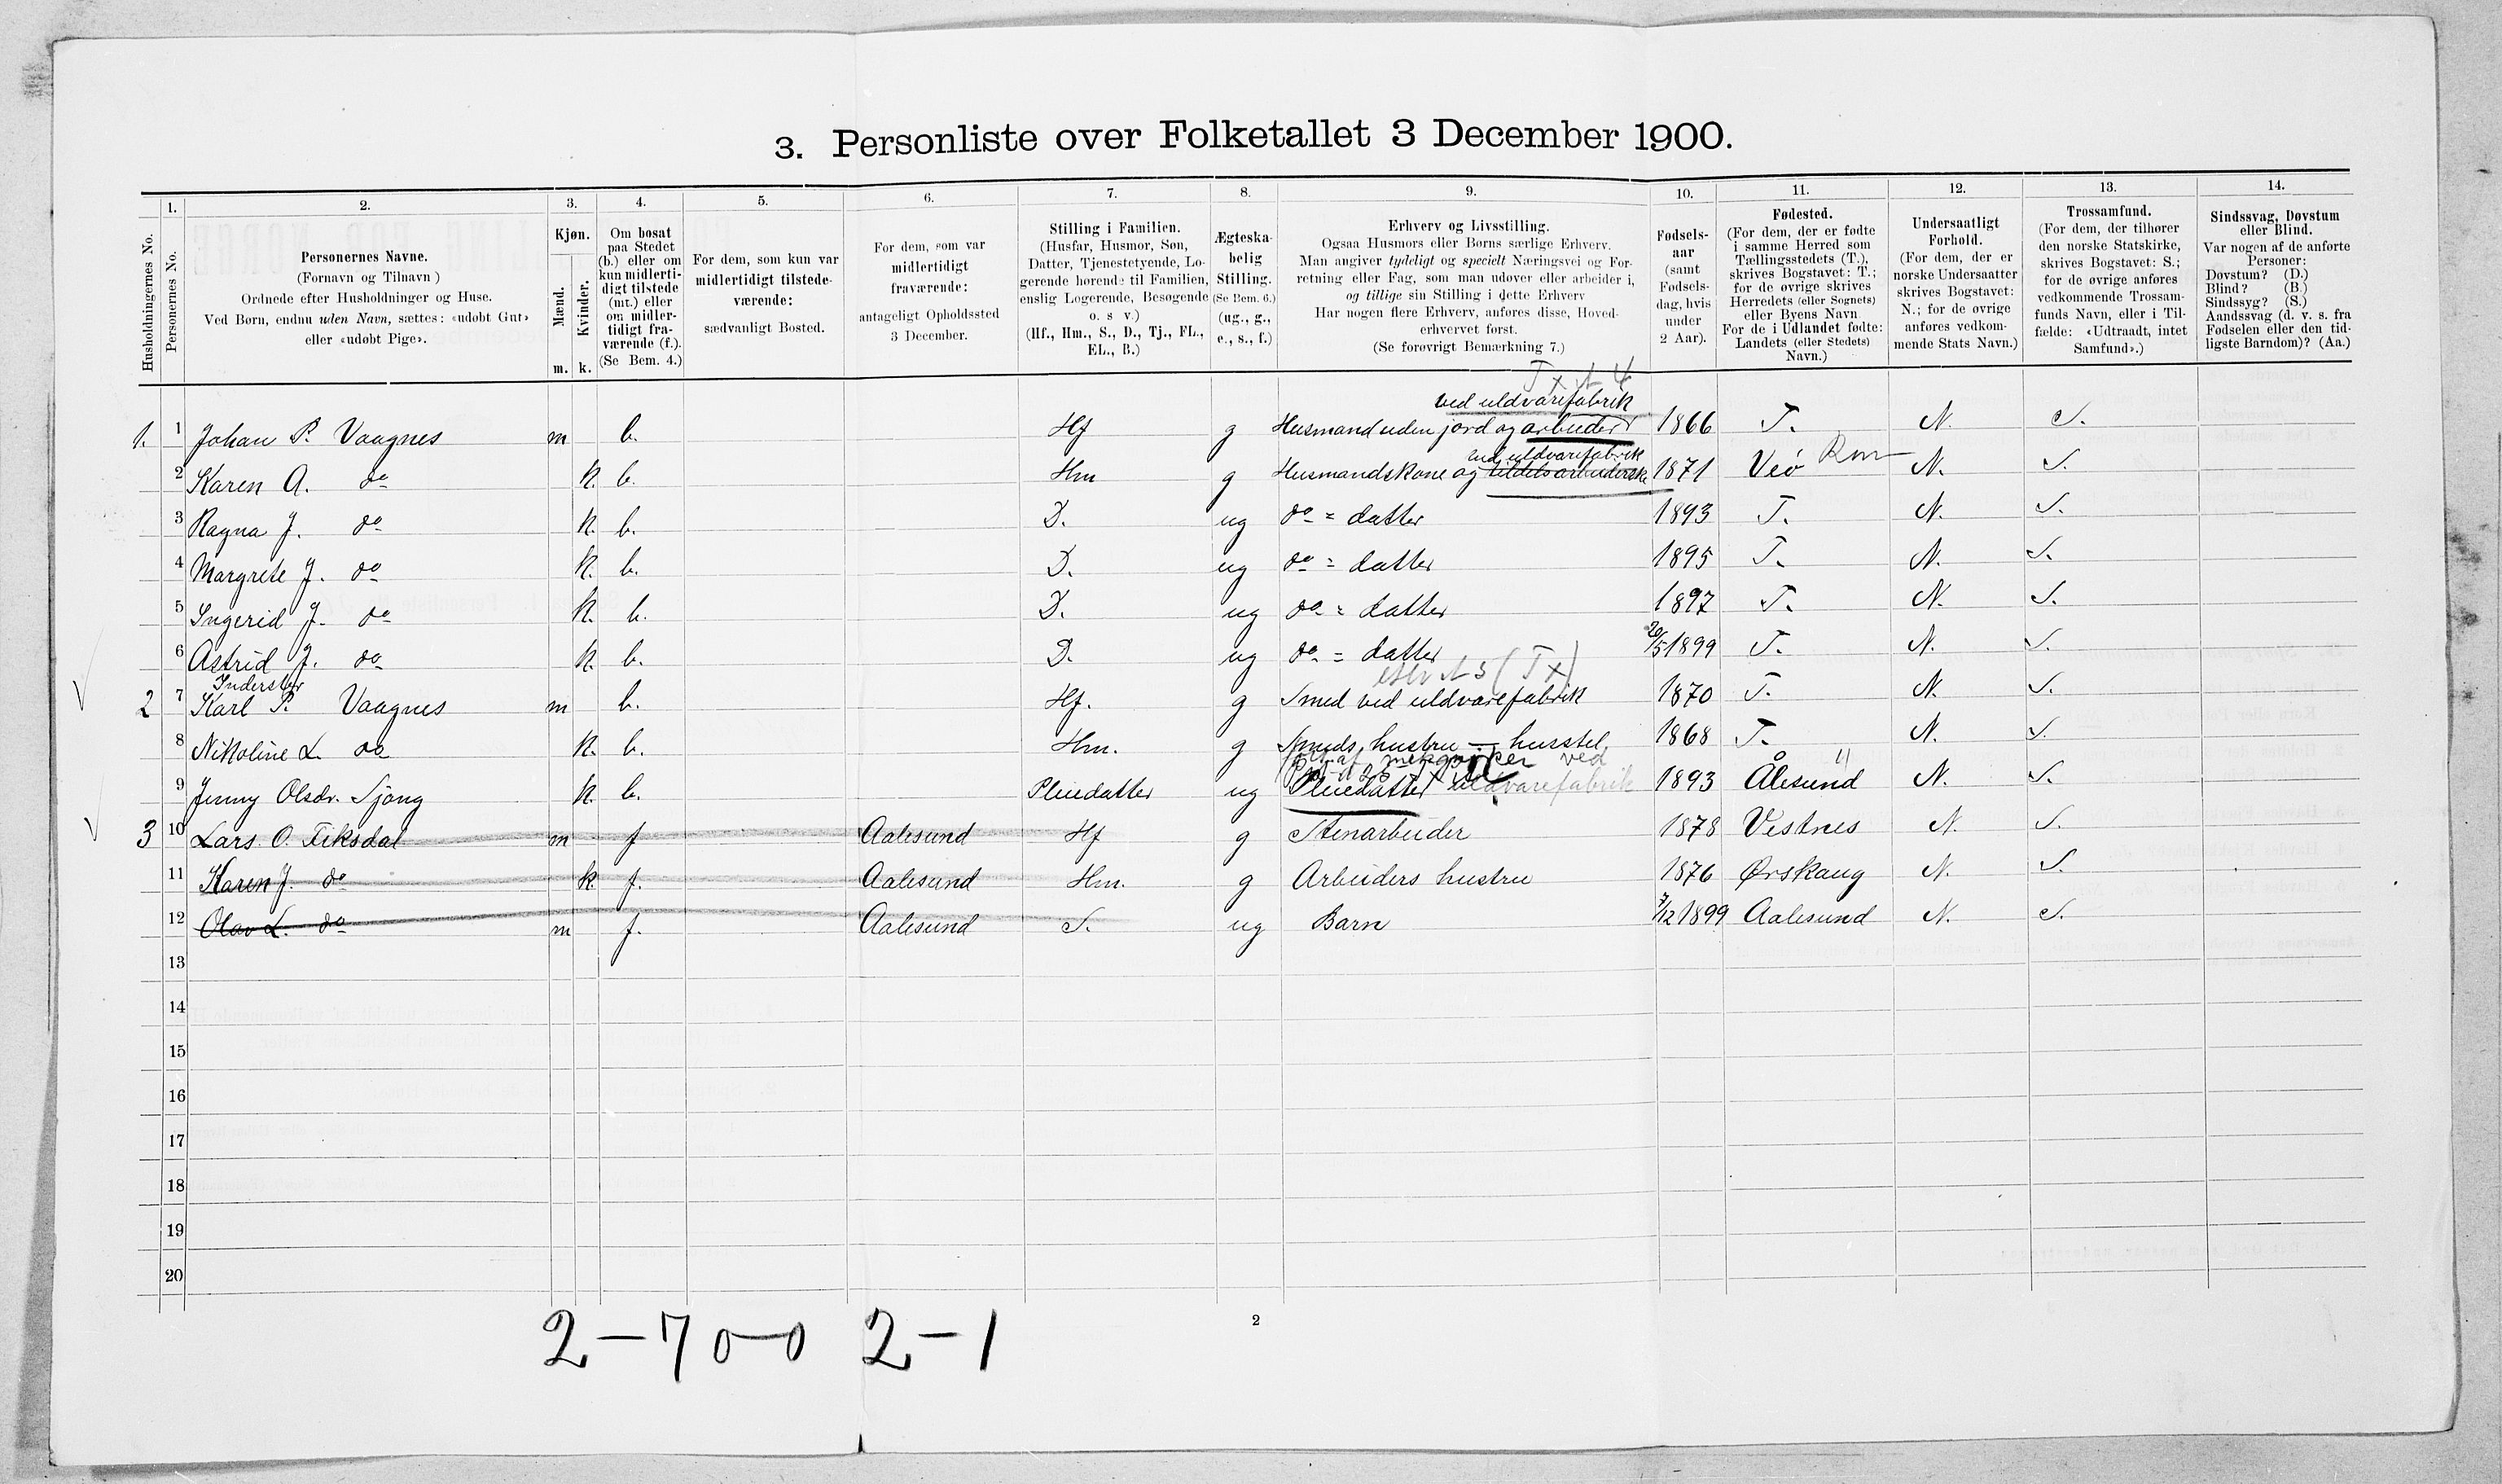 3. Personliste over Folketallet 3 December 1900.
1. 2. 3. 4. 5. 6. 7. 8. 9. 10. 11. 12. 13. 14.
Husholdningernes No.
Personernes No.
Personernes Navne.
(Fornavn og Tilnavn )
Ordnede efter Husholdninger og Huse.
Ved Børn, endnu uden Navn, sættes: «udøbt Gut»
eller «udøbt Pige».
Kjøn.
Mænd.
Kvinder.
m. k.
Om bosat
paa Stedet
(b.) eller om
kun midlerti-
digt tilstede
(mt.) eller
om midler-
tidigt fra-
værende (f.).
(Se Bem. 4.)
For dem, som kun var
midlertidigt tilstede-
værende:
sædvanligt Bosted.
For dem, som var
midlertidigt
fraværende:
antageligt Opholdssted
3 December.
Stilling i Familien.
(Husfar, Husmor, Søn,
Datter, Tjenestetyende, Lo-
gerende hørende til Familien,
enslig Logerende, Besøgende
o. s v.)
(Hf., Hm., S., D., Tj., FL.,
EL., B.)
Ægteska-
belig
Stilling.
(Se Bem. 6.)
(ug., g.,
e., s., f.)
Erhverv og Livsstilling.
Ogsaa Husmors eller Børns særlige Erhverv.
Man angiver tydeligt og specielt Næringsvei og For-
retning eller Fag, som man udøver eller arbeider i,
og tillige sin Stilling i dette Erhverv
Har nogen flere Erhverv, anføres disse, Hoved-
erhvervet først.
(Se forøvrigt Bemærkning 7.)
Fødsels-
aar
(samt
Fødsels-
dag, hvis
under
2 Aar).
Fødested.
(For dem, der er fødte
i samme Herred som
Tællingsstedets (T.),
skrives Bogstavet: T.;
for de øvrige skrives
Herredets (eller Sognets)
eller Byens Navn
For de i Udlandet fødte:
Landets (eller Stedets)
Navn.)
Undersaatligt
Forhold.
(For dem, der er
norske Undersaatter
skrives Bogstavet:
N.; for de øvrige
anføres vedkom-
mende Stats Navn.)
Trossamfund.
(For dem, der tilhører
den norske Statskirke,
skrives Bogstavet: S.;
for de øvrige anføres
vedkommende Trossam-
funds Navn, eller i Til-
fælde: «Udtraadt, intet
Samfund».)
Sindssvag, Døvstum
eller Blind.
Var nogen af de anførte
Personer:
Døvstum? (D.)
Blind? (B.)
Sindssyg? (S.)
Aandssvag (d. v. s. fra
Fødselen eller den tid-
ligste Barndom)? (Aa.)
ved uldvarefabrik
1. 1 Johan P. Vaagnes m b. Hf g Husmand uden jord og arbeider 1866 T. N. S.
ved uldvarefabrik
2 Karen A. do k. b. Hm g Husmandskone og 1871 Veö Rom N. S.
3 Ragna J. do k. b. D. ug do = datter 1893 T. N. S.
4 Margrete J. do k. b. D. ug do = datter 1895 T. N. S.
5 Ingerid J. do k. b. D. ug do = datter 1897 T. N. S.
6 Astrid J. do k. b. D. ug do = datter 20/5 1899 T. N. S.
Inderster
2 7 Karl P. Vaagnes m b. Hf. g Smed ved uldvarefabrik 1870 T. N. S.
8 Nikoline L. do k. b. Hm. g Smeds hustru — husstel 1868 T. N. S.
9 Jenny Olsdr. Sjong k. b. Pleiedatter ug Pleiedatter uldvarefabrik 1893 Ålesund N. S.
3 10 Lars O. Fiksdal m f Aalesund Hf g Stenarbeider 1878 Vestnes N. S.
11 Karen J. do k. f. Aalesund Hm. g Arbeiders hustru 1876 Ørskaug N. S.
12 Olav L. do m f. Aalesund S. ug Barn 7/12 1899 Aalesund N. S.
13
14
15
16
17
18
19
20
2 — 7 0—0 2 — 1
2